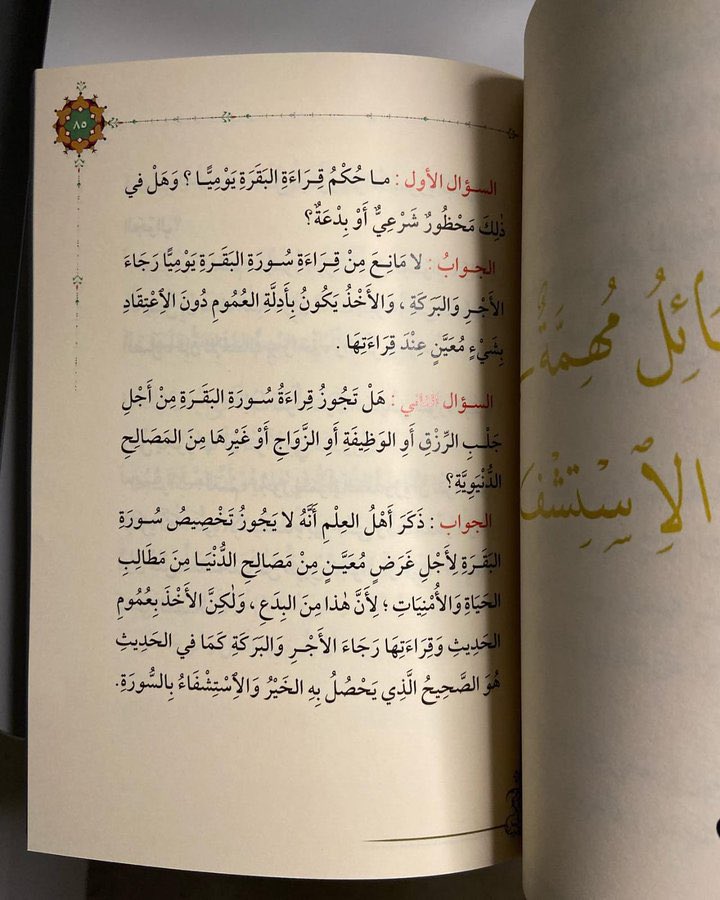 مسائل مُهِمَّةٌ
الاِسْتِشْفَا
٨٥
السؤال الأول : ما حُكْمُ قِرَاءَةِ البَقَرَةِ يَوْمِيًّا ؟ وَهَلْ في
ذٰلِكَ مَحْظُورٌ شَرْعِيٌّ أَوْ بِدْعَةٌ؟
الجوابُ : لا مَانِعَ مِنْ قِرَاءَةِ سُورَةِ البَقَرَةِ يَوْمِيًّا رَجَاءَ
الأَجْرِ وَالبَرَكَةِ ، وَالأَخْذُ يَكُونُ بِأَدِلَّةِ العُمُومِ دُونَ الِاعْتِقَادِ
بِشَيْءٍ مُعَيَّنٍ عِنْدَ قِرَاءَتِهَا .
السؤال الثاني : هَلْ تَجُوزُ قِراءَةُ سُورَةِ البَقَرَةِ مِنْ أَجْلِ
جَلْبِ الرِّزْقِ أَوِ الوَظِيفَةِ أَوِ الزَّوَاجِ أَوْ غَيْرِهَا مِنَ المَصَالِحِ
الدُّنْيَوِيَّةِ؟
الجواب : ذَكَرَ أَهْلُ العِلْمِ أَنَّهُ لا يَجُوزُ تَخْصِيصُ سُورَةِ
البَقَرَةِ لِأَجْلِ غَرَضٍ مُعَيَّنٍ مِنْ مَصَالِحِ الدُّنْيَا مِنَ مَطَالِبِ
الحَيَاةِ وَالأُمْنِيَاتِ ؛ لِأَنَّ هٰذا مِنَ البِدَعِ ، وَلٰكِنَّ الأَخْذَ بِعُمُومِ
الحَدِيثِ وَقِرَاءَتِهَا رَجَاءَ الأَجْرِ وَالبَرَكَةِ كَمَا في الحَدِيثِ
هُوَ الصَّحِيحُ الَّذِي يَحْصُلُ بِهِ الخَيْرُ وَالِاسْتِشْفَاءُ بِالسُّورَةِ.